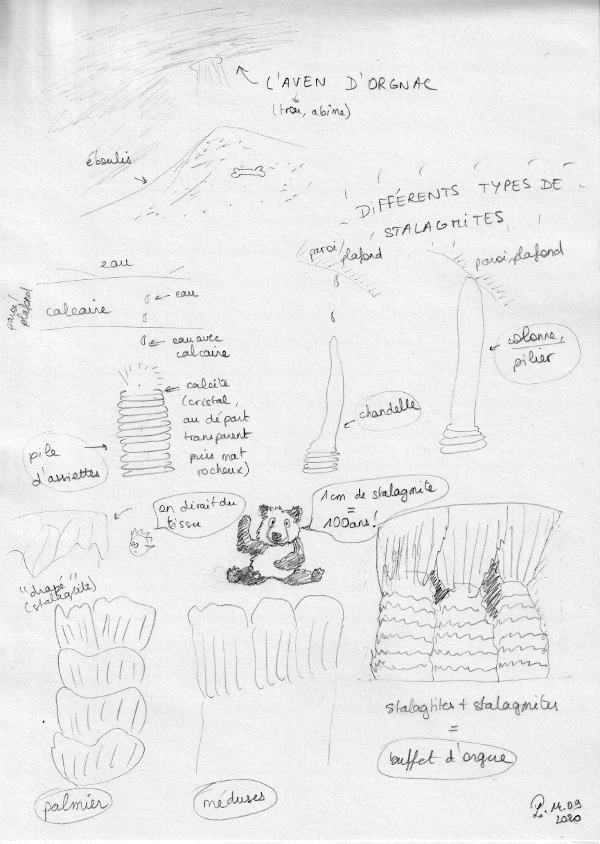 L'AVEN D'ORGNAC
(trou, abîme)
éboulis
DIFFÉRENTS TYPES DE
STALAGMITES
eau
paroi/
plafond
calcaire
eau
eau avec
calcaire
calcite
(cristal,
au départ
transparent
puis mat
rocheux)
pile
d'assiettes
paroi/plafond
chandelle
paroi, plafond
colonne,
pilier
"drapé"
(stalagtite)
on dirait du
tissu
1cm de stalagmite
=
100 ans!
palmier
méduses
stalagtites + stalagmites
=
buffet d'orgue
14.09
2020